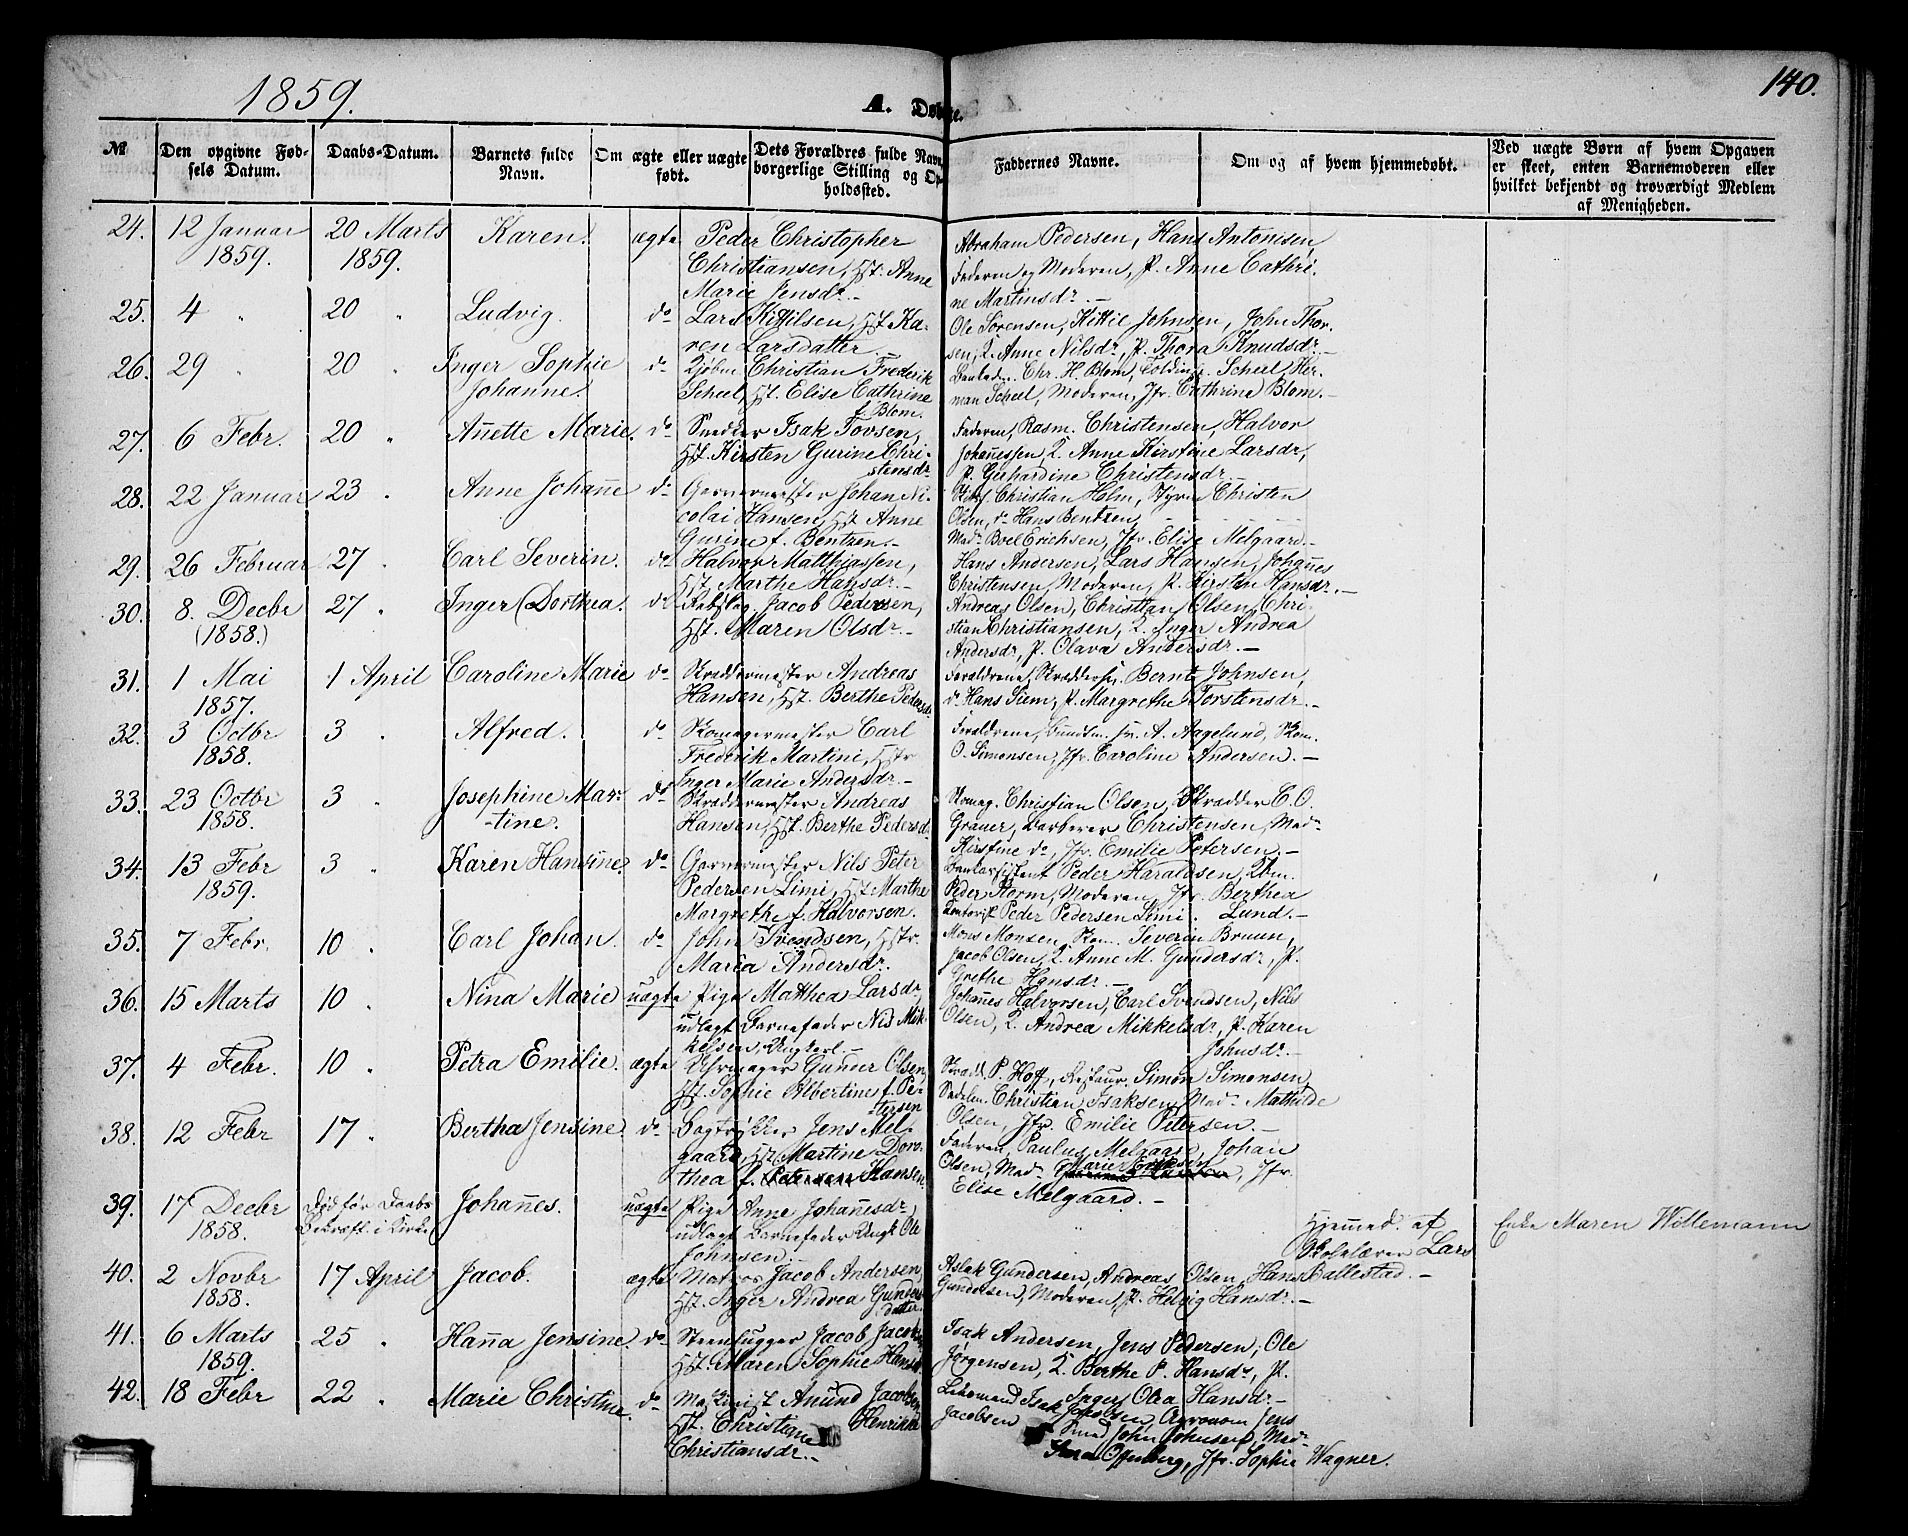 1859.
A. Døbte.
140.
№
Den opgivne Fød-
sels Datum.
Daabs-Datum.
Barnets fulde
Navn.
Om ægte eller uægte
født.
Dets Forældres fulde Navn,
borgerlige Stilling og Op-
holdssted.
Faddernes Navne.
Om og af hvem hjemmedøbt.
Ved uægte Børn af hvem Opgaven
er skeet, enten Barnemoderen eller
hvilket bekjendt og troværdigt Medlem
af Menigheden.
24. 12 Januar 20 Marts Karen. ægte Peder Christopher
1859. 1859. Christiansen, Hst. Anne
Marie Jensdr.
Abraham Pedersen, Hans Antonisen,
Faderen og Moderen, P. Anne Cathri-
ne Martinsdr.
25. 4 " 20 " Ludvig. do Lars Kittilsen, Hst. Ka-
ren Larsdatter.
Ole Sørensen, Kittil Johnsen, John Thor-
sen, K. Anne Nilsdr, P. Thora Knudsdr.
26. 29 " 20 " Inger Sophie do Kjøbm. Christian Frederik
Johanne. Scheel, Hst. Elise Cathrine
f. Blom.
Chr. H. Blom, Scheel, Her-
man Scheel, Moderen, Jfr. Cathrine Blom.
27. 6 Febr. 20 " Anette Marie. do Snedker Isak Tovsen,
Hst. Kirsten Gurine Chri-
stensdr.
Faderen, Rasm. Christensen, Halvor
Johannessen, K. Anne Kirstine Larsdr,
P. Gerhardine Christensdr.
28. 22 Januar 23 " Anne Johanne do Garvermester Johan Ni-
colai Hansen, Hst. Anne
Gurine f. Bentzen.
Christian Holm, Styrm. Christen
Olsen, do Hans Bentzen,
Mad. Boel Erichsen, Jfr. Elise Melgaard.
29. 26 Februar 27 " Carl Severin. do Halvor Matthiassen,
Hst. Marthe Hansdr.
Hans Andersen, Lars Hansen, Johannes
Christensen, Moderen, P. Kirsten Hansdr.
30. 8. Decbr 27 " Inger Dorthea. do Rebslag. Jacob Pedersen,
(1858.) Hst. Maren Olsdr.
Andreas Olsen, Christian Olsen, Chri-
stian Christiansen, K. Inger Andrea
Andersdr, P. Olava Andersdr.
31. 1 Mai 1 April Caroline Marie do Skræddermester Andreas
1857. Hansen, Hst. Berthe Pedersdr
Forældrene, Bernt Johnsen,
do Hans Siem, P. Margrethe Torstensdr.
32. 3 Octbr 3 " Alfred. do Skomagermester Carl
1858. Frederik Martini, Hstr
Inger Marie Andersdr.
Forældrene, A. Aagelund, Skom.
O. Simonsen, Jfr. Caroline Andersen.
33. 23 Octbr 3 " Josephine Mar- do Skræddermester Andreas
1858. tine. Hansen, Hst. Berthe Pedersdr
Skomag. Christian Olsen, Skrædder C. O.
Grauer, Barberer Christensen, Mad.
Kirstine do, Jfr. Emilie Petersen.
34. 13 Febr 3 " Karen Hansine. do Garvermester Nils Peter
1859. Pedersen Limi, Hst. Marthe
Margrethe f. Halvorsen.
Peder Haraldsen,
Peder Storm, Moderen, Jfr. Berthea
Kontorist Peder Pedersen Limi. Lund.
35. 7 Febr. 10 " Carl Johan. do John Svendsen, Hstr.
Maria Andersdr.
Mons Monsen, Skom. Severin Bruun,
Jacob Olsen, K. Anne M. Gundersdr, P.
Grethe Hansdr.
36. 15 Marts 10 " Nina Marie uægte Pige Matthea Larsdr,
udlagt Barnefader Nils Mik-
kelsen, Ungkarl.
Johannes Halvorsen, Carl Svendsen, Nils
Olsen, K. Andrea Mikkelsdr, P. Karen
Johnsdr.
37. 4 Febr. 10 " Petra Emilie. ægte Uhrmager Gunder Olsen,
Hst. Sophie Albertine f. Pe-
tersen
Skrædd. P. Hoff, Restaur. Simon Simonsen,
Sadelm. Christian Isaksen, Mad. Mathilde
Olsen, Jfr. Emilie Petersen.
38. 12 Febr 17 " Bertha Jensine. do Bogtrykker Jens Mel-
gaard, Hst. Martine Doro-
thea f. Petersen Hansen
Faderen, Paulus Melgaard, Johan
Olsen, Mad. Marie Jfr.
Elise Melgaard.
39. 17 Decbr Død før Daabs Johannes. uægte Pige Anne Johannesdr,
1858. Bekræft. i Kirke udlagt Barnefader Ungk. Ole
Johnsen
Hjemmed. af
Skolelærer Lars
Ballestad.
Enke Maren Willemann
40. 2 Novbr 17 April Jacob. ægte Matros Jacob Andersen,
1858. Hst. Inger Andrea Gunders-
datter.
Aslak Gundersen, Andreas Olsen, Hans
Gundersen, Moderen, P. Helvig Hansdr.
41. 6 Marts 25 " Hanna Jensine. do Steenhugger Jacob Jacobs.
1859. Hst. Maren Sophie Hansdr
Isak Andersen, Jens Pedersen, Ole
Jørgensen, K. Berthe P. Hansdr, P.
Inger Olea Hansdr.
42. 18 Febr 22 " Marie Christine. do Maskinist Anund Jacobsen
Hst. Christiane Henrikke
Christiansdr.
Isak Jacobsen, Agronom Jens
Jacobsen Smed John Johnsen, Mad.
Sara Offenberg, Jfr. Sophie Wagner.